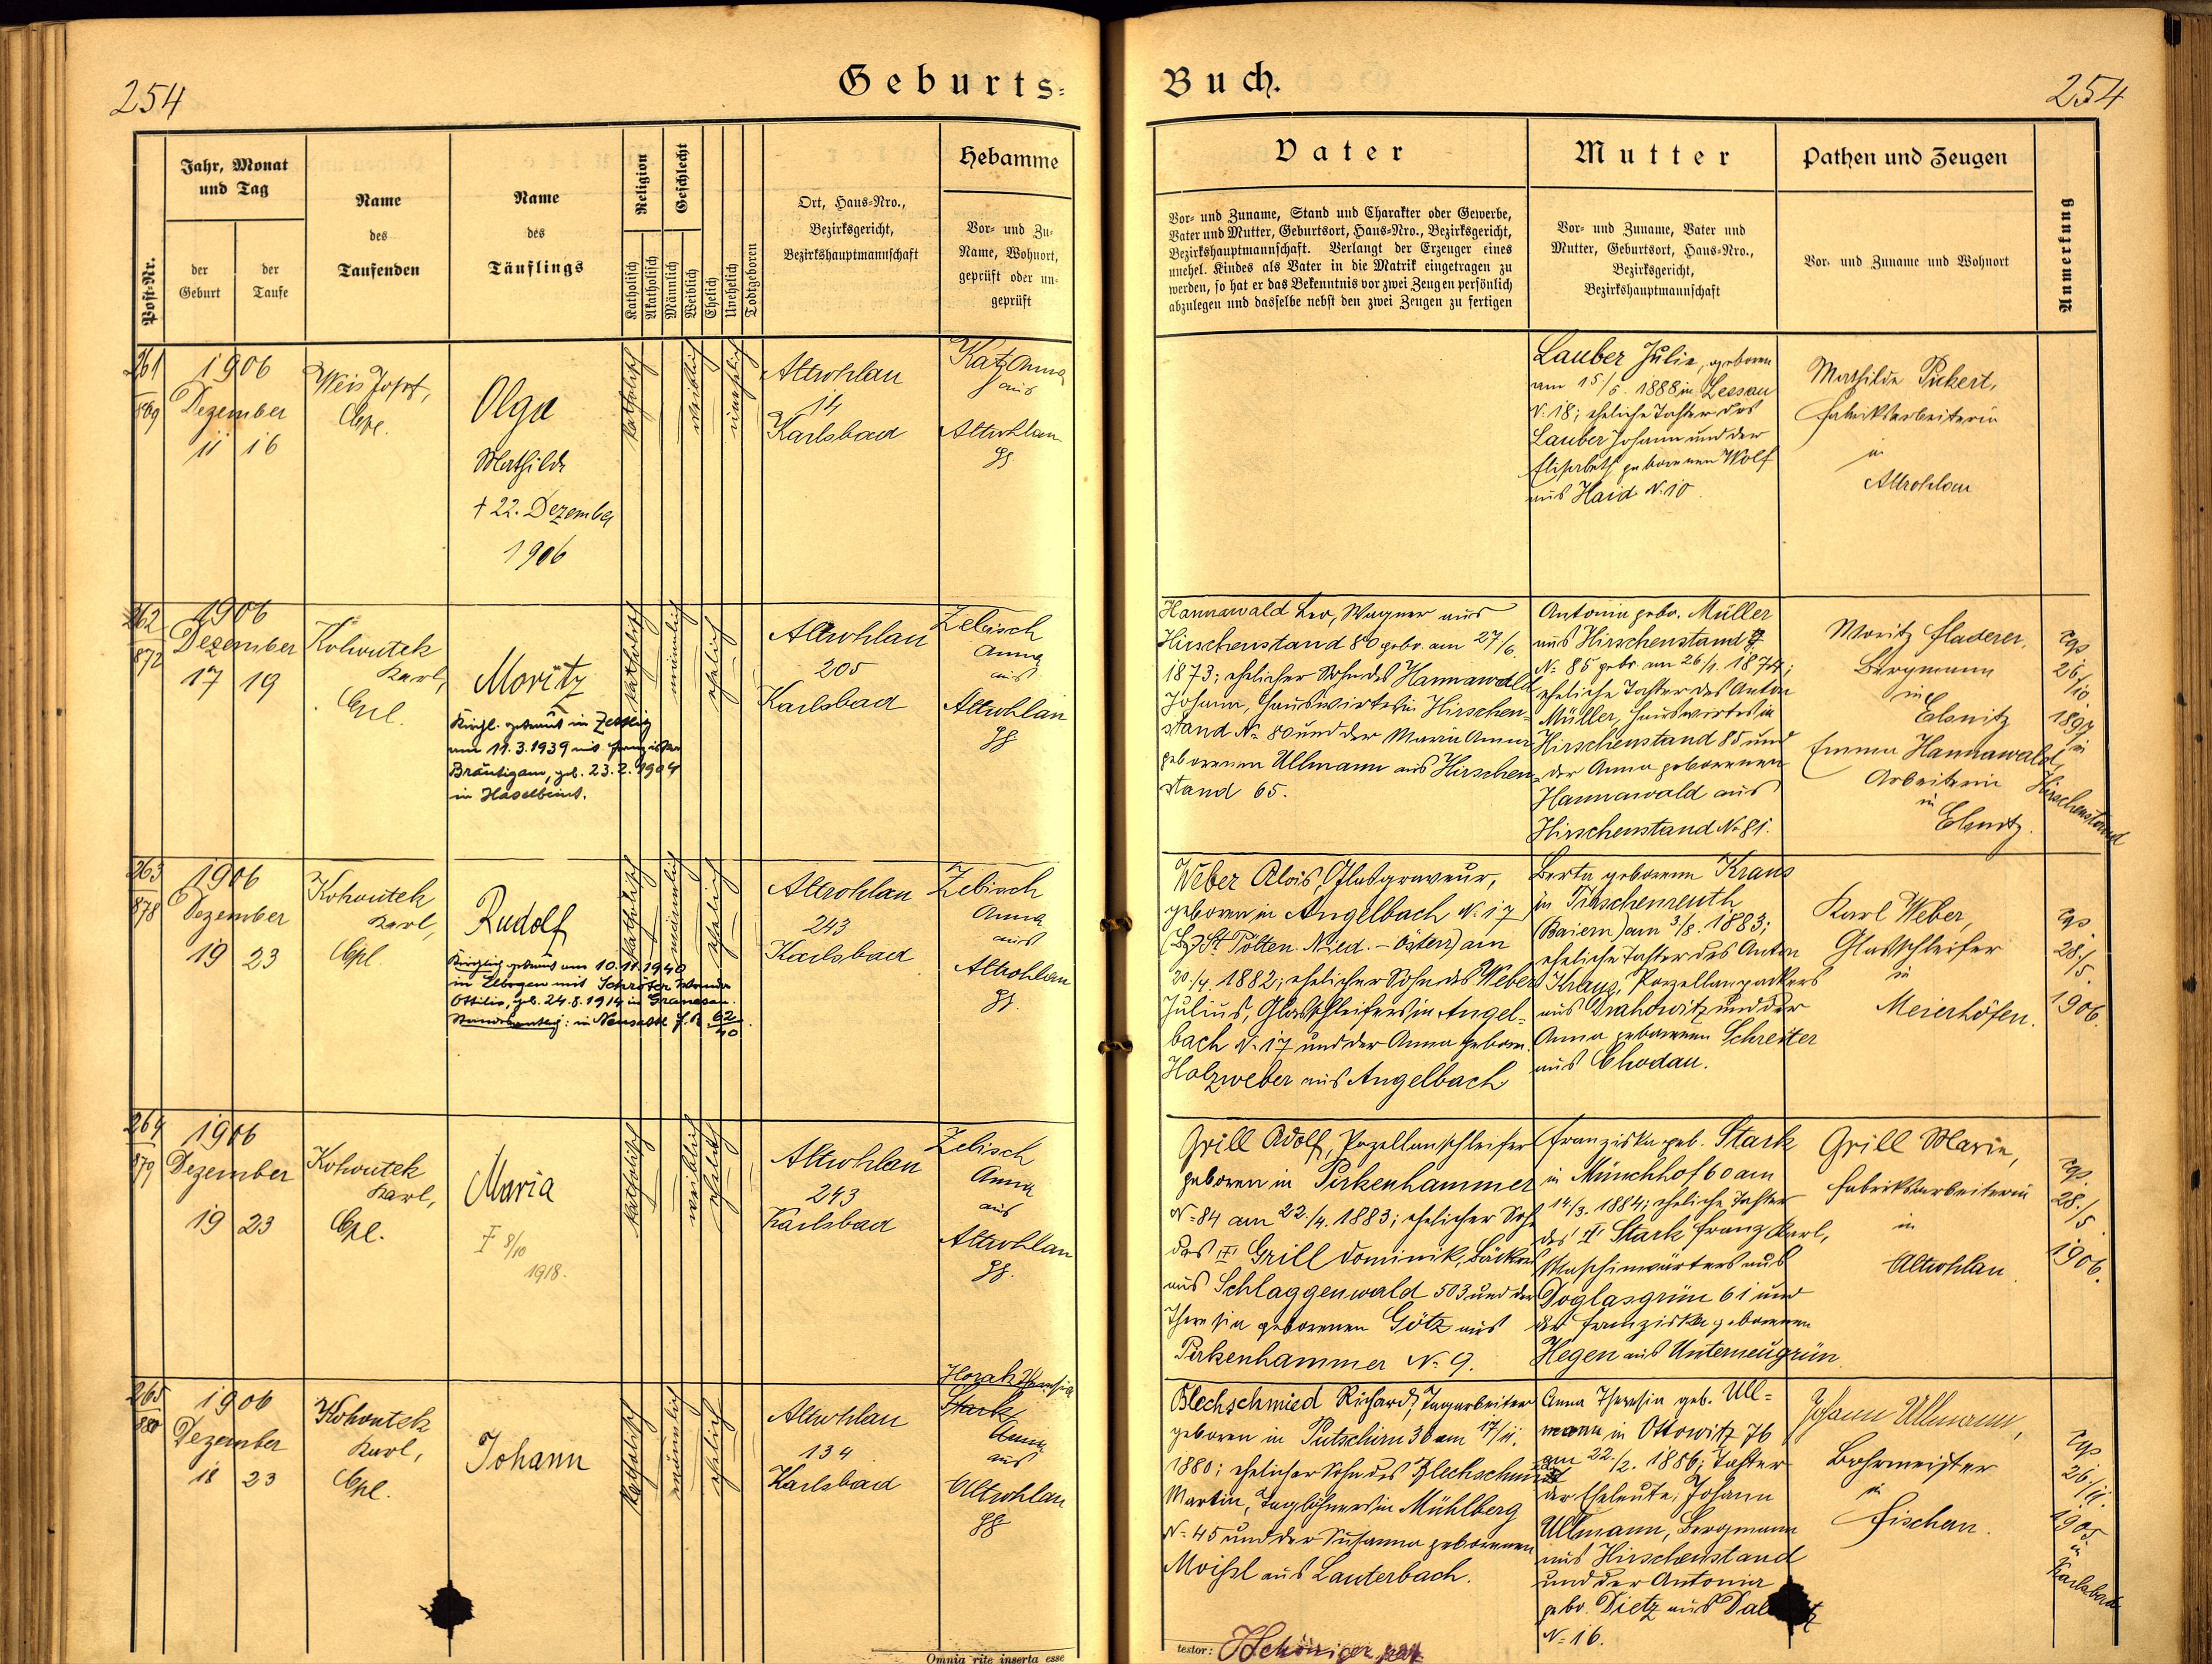 254
Geburts-
Buch.
254
Post-Nr.
Jahr, Monat
und Tag
der
Geburt
der
Taufe
Name
des
Taufenden
Name
des
Täuflings
Religion
Katholisch
Akatholisch
Geschlecht
Männlich
Weiblich
Ehelich
Unehelich
Todtgeboren
Ort, Haus-Nro.,
Bezirksgericht,
Bezirkshauptmannschaft
Hebamme
Vor- und Zu-
Name, Wohnort,
geprüft oder un-
geprüft
Vater
Vor- und Zuname, Stand und Charakter oder Gewerbe,
Vater und Mutter, Geburtsort, Haus-Nro., Bezirksgericht,
Bezirkshauptmannschaft. Verlangt der Erzeuger eines
unehel. Kindes als Vater in die Matrik eingetragen zu
werden, so hat er das Bekenntnis vor zwei Zeugen persönlich
abzulegen und dasselbe nebst den zwei Zeugen zu fertigen
Mutter
Vor- und Zuname, Vater und
Mutter, Geburtsort, Haus-Nro.,
Bezirksgericht,
Bezirkshauptmannschaft
Pathen und Zeugen
Vor- und Zuname und Wohnort
Anmerkung
261
869
1906
Dezember
11 16
Weis Josef,
Cpl.
Olga
Mathilde
† 22. Dezember
1906
katholisch
weiblich
unehelich
Altrohlau
14
Karlsbad
Katz Anna
aus
Altrohlau
gg.
Lauber Julie, geboren
am 15/5. 1888 in Lessau
N. 18; eheliche Tochter des
Lauber Johann und der
Elisabeth geborenen Wolf
aus Haid N. 10.
Mathilde Pickert,
Fabriksarbeiterin
in
Altrohlau
262
872
1906
Dezember
17 19
Kohoutek
Karl,
Cpl.
Moritz
Kirchl. getraut in Zettlitz
am 11.3.1939 mit Franziska
Bräutigam, geb. 23.2.1904
in Haselbrunn.
katholisch
männlich
ehelich
Altrohlau
205
Karlsbad
Zebisch
Anna
aus
Altrohlau
gg
Hannawald Leo, Wagner aus
Hirschenstand 80 gebr. am 27/6
1873; ehelicher Sohn des Hannawald
Johann, Hauswirtes in Hirschen-
stand N= 80 und der Maria Anna
geborenen Ullmann aus Hirschen-
stand 65.
Antonia gebr. Müller
aus Hirschenstand
N= 85 gebr. am 26/1. 1874;
eheliche Tochter des Anton
Müller, Hauswirtes in
Hirschenstand 85 und
der Anna geborenen
Hannawald aus
Hirschenstand N. 81.
Moritz Fladerer,
Bergmann
in
Elsnitz
Emma Hannawald,
Arbeiterin
in
Elsnitz.
cps
26/
10.
1897
in
Hirschenstand
263
878
1906
Dezember
19 23
Kohoutek
Karl,
Cpl.
Rudolf
Kirchlich getraut am 10.11.1940
in Elbogen mit Schröter Wanda
Ottilie, geb. 24.8.1914 in Granesau.
in Neusattl F.R. 62/40
katholisch
männlich
ehelich
Altrohlau
243
Karlsbad
Zebisch
Anna
aus
Altrohlau
gg.
Weber Alois, Glasgraveur,
geboren in Angelbach N. 17
(Bz. St. Pölten. Nied.-Österr) am
20./4. 1882; ehelicher Sohn des Weber
Julius, Glasschleifers in Angel-
bach N. 17 und der Anna geboren.
Holzweber aus Angelbach
Berta geborene Kraus
in Tirschenreuth
(Baiern) am 3/8. 1883;
eheliche Tochter des Anton
Kraus, Porzellanpackers
aus Drahowitz und der
Anna geborenen Schreiter
aus Chodau.
Karl Weber,
Glasschleifer
in
Meierhöfen.
cps
28./
5.
1906.
264
879
1906
Dezember
19 23
Kohoutek
Karl,
Cpl.
Maria
† 8/10
1918.
katholisch
weiblich
ehelich
Altrohlau
243
Karlsbad
Zebisch
Anna
aus
Altrohlau
gg.
Grill Adolf, Pozellanschleifer
geboren in Pirkenhammer
N=84 am 22./4. 1883; ehelicher Sohn
des † Grill Dominik, Bäckers
aus Schlaggenwald 503 und der
Theresia geborenen Götz aus
Pirkenhammer N= 9.
Franziska geb. Stark
in Münchhof 60 am
14/3. 1884; eheliche Tochter
des † Stark Franz Karl,
Maschinwärters aus
Doglasgrün 61 und
der Franziska geborenen
Hegen aus Unterneugrün
Grill Marie,
Fabriksarbeiterin
in
Altrohlau
cps.
28./
5.
1906.
265
880
1906
Dezember
18 23
Kohoutek
Karl,
Cpl.
Johann
katholisch
männlich
ehelich
Altrohlau
134
Karlsbad
Horak Theresia
Stark
Anna
aus
Altrohlau
gg
Blechschmied Richard, Tagarbeiter
geboren in Putschirn 36 am 17/11.
1880; ehelicher Sohn des Blechschmied
Martin, Taglöhners in Mühlberg
N=45 und der Susanna geborenen
Moißl aus Lauterbach.
Anna Theresia geb. Ull-
mann in Ottowitz 76
am 22./2. 1886; Tochter
der Eheleute Johann
Ullmann, Bergmann
aus Hirschenstand
und der Antonia
gebr. Dietz aus
N= 16.
Johann Ullmann,
Bohrmeister
in
Fischern.
cps
26./11.
1905
in
Karlsbad
Omnia rite inserta esse
testor: